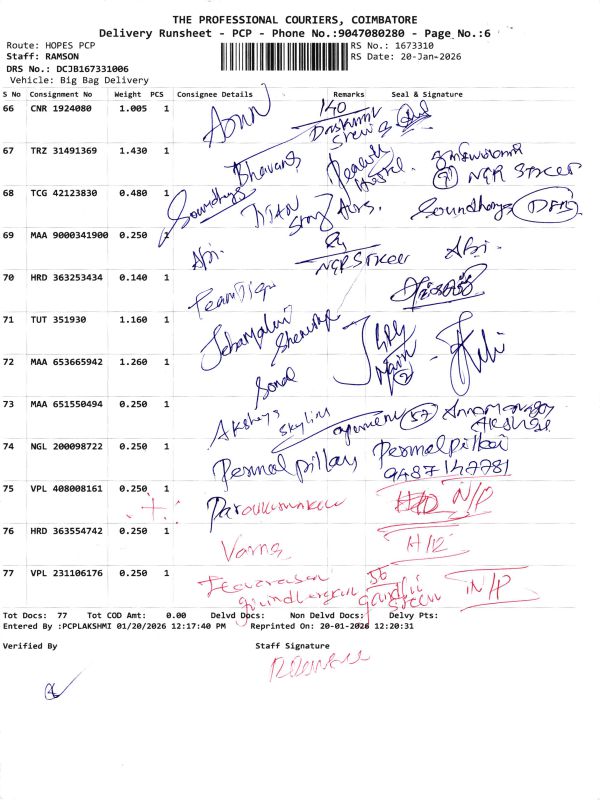 THE PROFESSIONAL COURIERS, COIMBATORE
Delivery Runsheet - PCP - Phone No.:9047080280 - Page No.:6
Route: HOPES PCP RS No.: 1673310
Staff: RAMSON RS Date: 20-Jan-2026
DRS No.: DCJB167331006
Vehicle: Big Bag Delivery
S No Consignment No Weight PCS Consignee Details Remarks Seal & Signature
66 CNR 1924080 1.005 1 140
67 TRZ 31491369 1.430 1 Bhavans Hostel. NGR Street
68 TCG 42123830 0.480 1 Soundharya TITAN Soundharya
69 MAA 9000341900 0.250 1 Abi. NGR Street Abi.
70 HRD 363253434 0.140 1
71 TUT 351930 1.160 1 Jebamalar
72 MAA 653665942 1.260 1 Sonal Main 2
73 MAA 651550494 0.250 1 Akshaya Skyline 57
74 NGL 200098722 0.250 1 Permal pillai Permal pillai
9487147781
75 VPL 408008161 0.250 1 N/P
76 HRD 363554742 0.250 1 Varna H/12
77 VPL 231106176 0.250 1 56 gandhi street N/P
Tot Docs: 77 Tot COD Amt: 0.00 Delvd Docs: Non Delvd Docs: Delvy Pts:
Entered By :PCPLAKSHMI 01/20/2026 12:17:40 PM Reprinted On: 20-01-2026 12:20:31
Verified By Staff Signature